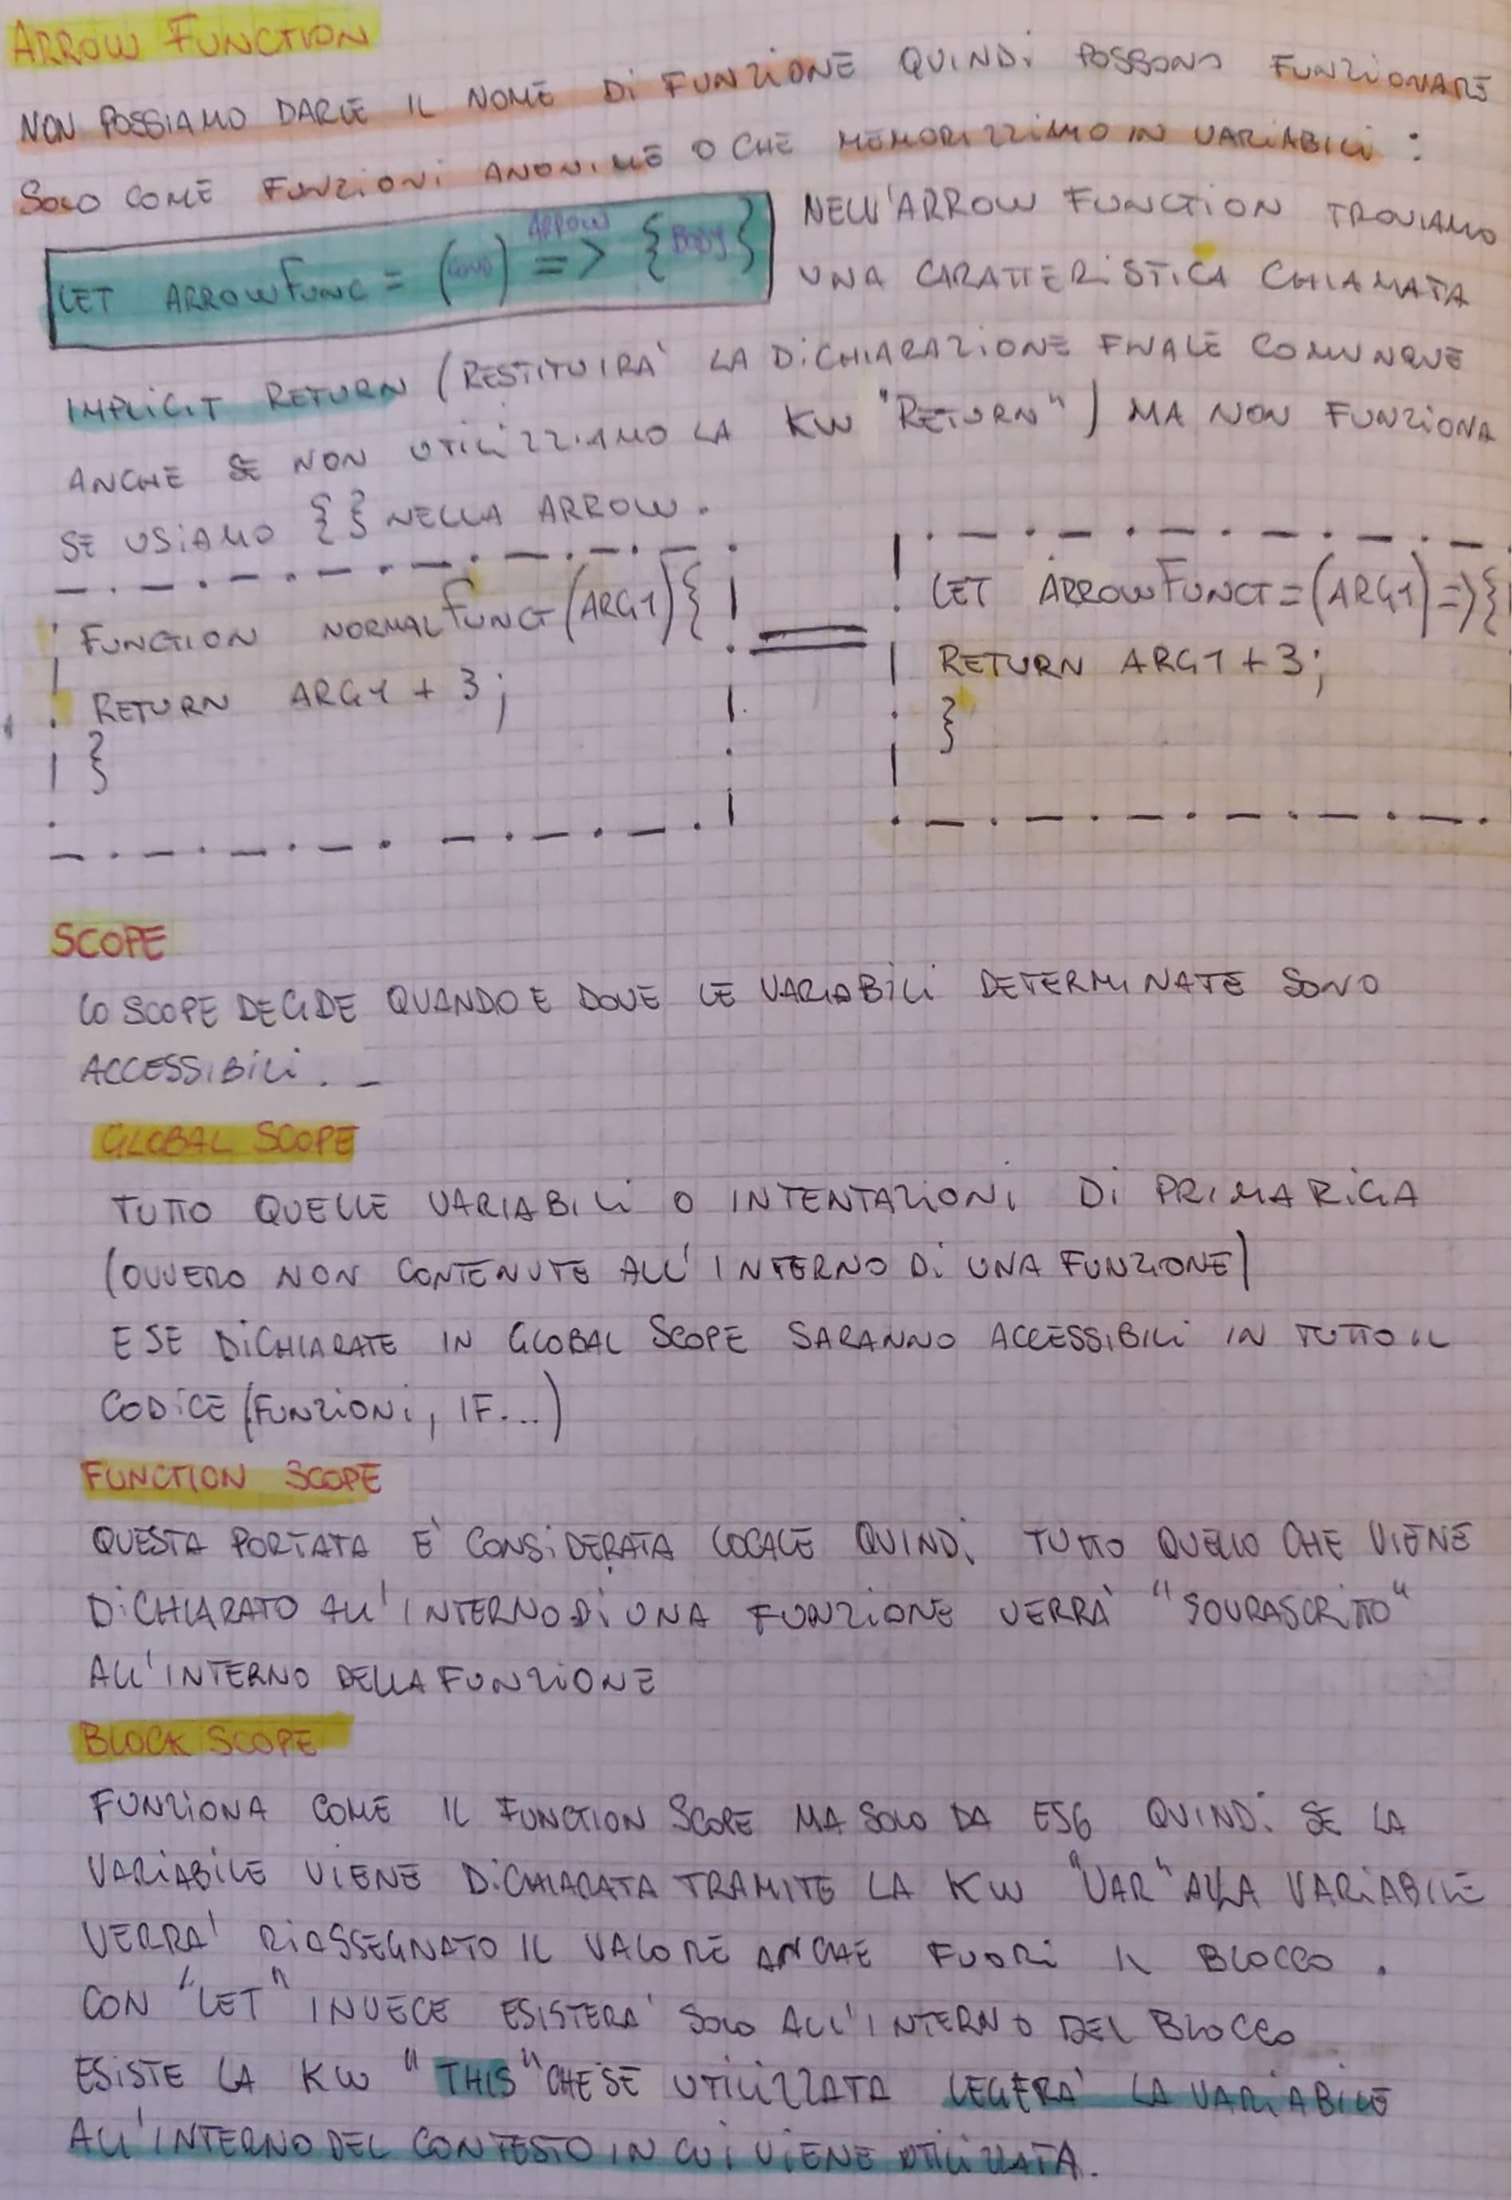 ARROW FUNCTION
NON POSSIAMO DARLE IL NOME Di FUNZIONE QUINDi POSSONO FUNZIONARE
SOLO COME FUNZIONi ANONIME O CHE MEMORIZZIAMO IN VARIABILI :
LET ARROWFUNC = ( ) ARROW => { BODY }
NELL'ARROW FUNCTION TROVIAMO
UNA CARATTERISTICA CHIAMATA
IMPLICIT RETURN (RESTITUIRA' LA DICHIARAZIONE FINALE COMUNQUE
ANCHE SE NON UTILIZZIAMO LA KW "RETURN") MA NON FUNZIONA
SE USIAMO {} NELLA ARROW.
FUNCTION NORMALFUNCT(ARG1){
RETURN ARG1 + 3;
}
=
LET ARROWFUNCT=(ARG1)=>{
RETURN ARG1+3;
}
SCOPE
LO SCOPE DECIDE QUANDO E DOVE LE VARIABILI DETERMINATE SONO
ACCESSIBILI. _
GLOBAL SCOPE
TUTTO QUELLE VARIABILI O INTENTAZIONI DI PRIMA RIGA
(OVVERO NON CONTENUTE ALL'INTERNO DI UNA FUNZIONE)
E SE DICHIARATE IN GLOBAL SCOPE SARANNO ACCESSIBILI IN TUTTO IL
CODICE (FUNZIONI, IF...)
FUNCTION SCOPE
QUESTA PORTATA E' CONSIDERATA LOCALE QUINDI TUTTO QUELLO CHE VIENE
DICHIARATO ALL'INTERNO DI UNA FUNZIONE VERRÀ "SOVRASCRITTO"
ALL'INTERNO DELLA FUNZIONE
BLOCK SCOPE
FUNZIONA COME IL FUNCTION SCOPE MA SOLO DA ES6 QUINDI SE LA
VARIABILE VIENE DICHIARATA TRAMITE LA KW "VAR" ALLA VARIABILE
VERRA' RIASSEGNATO IL VALORE ANCHE FUORI IL BLOCCO.
CON "LET" INVECE ESISTERA' SOLO ALL'INTERNO DEL BLOCCO
ESISTE LA KW "THIS" CHE SE UTILIZZATA LEGERA' LA VARIABILE
ALL'INTERNO DEL CONTESTO IN CUI VIENE UTILIZZATA.